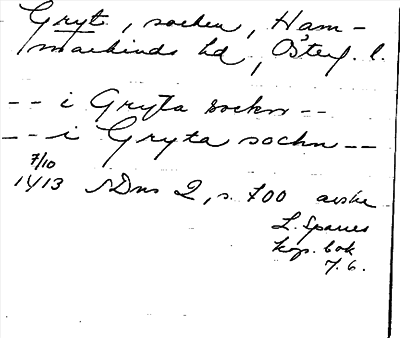 Gryt, socken, Ham-
markinds hd, Österg. l.
-- i Gryta sockn --
-- i Gryta sochn --
7/10
1413 SDns 2, s. 700 avskr
L. Sparres
kop. bok
7. 6.